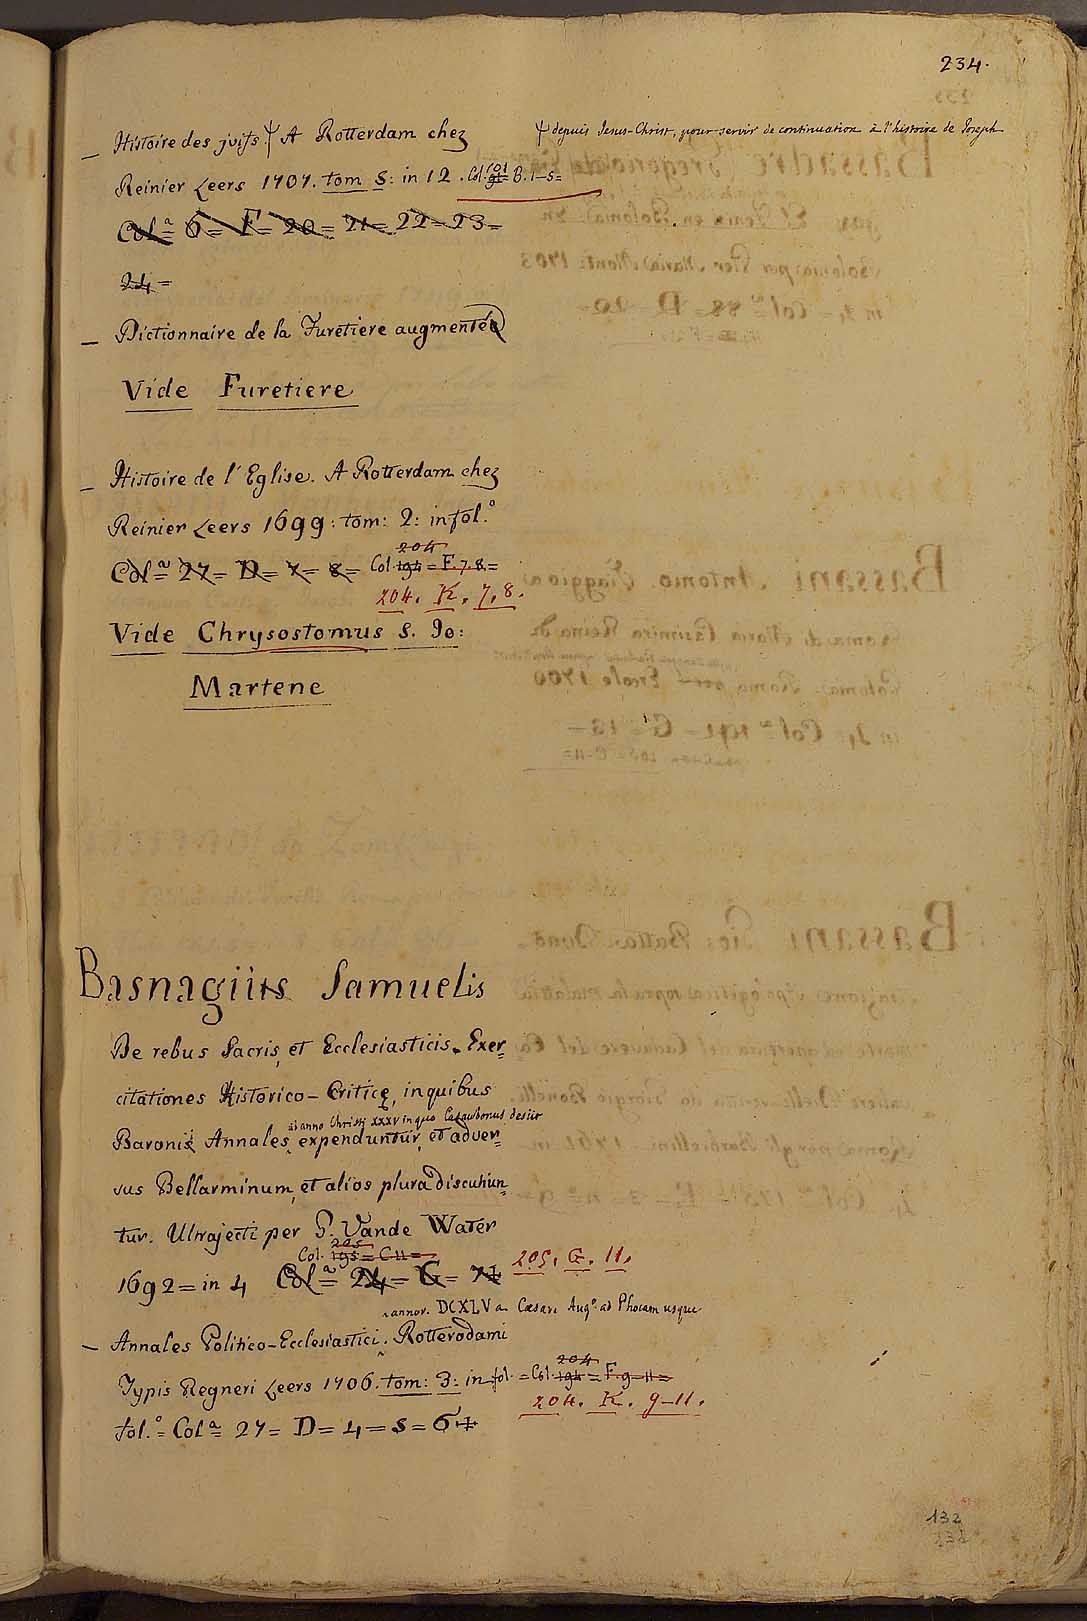 234.
_ Histoire des juifs Ψ A Rotterdam chez
Ψ depuis Jesus-Christ, pour servir de continuation à l'histoire de Joseph
Reinier Leers 1707. tom 5: in 12. Col. 101 B. 1-5=
Colª= 6= F= 20= 21= 22= 23=
24=
_ Dictionnaire de la Furetiere augmenté
Vide Furetiere
_ Histoire de l'Eglise. A Rotterdam chez
Reinier Leers 1699: tom: 2: in fol.º
204
Colª= 27= D= 7= 8= Col 194= F. 7. 8.=
204. K. 7, 8.
Vide Chrysostomus S. Jo:
Martene
Basnagius Samuelis
De rebus Sacris, et Ecclesiasticis. Exer=
citationes Historico-Criticę, in quibus
ab anno Christi XXXV in quo Casaubonus desiit
Baronij Annales expenduntur, et adver=
sus Bellarminum, et alios plura discutiun=
tur. Ultrajecti per G. Vande Water
205
Col. 195= C 11=
1692= in 4 Colª= 24= G=
205. G. 11.
annor. DCXLV a Cæsare Augº. ad Phocam usque
_ Annales Politico-Ecclesiastici. Rotterodami
204
Typis Regneri Leers 1706. tom: 3: in fol. = Col. 194= F. 9-11=
204. K. 9-11.
fol.º= Colª= 27= D= 4= 5= 6
132